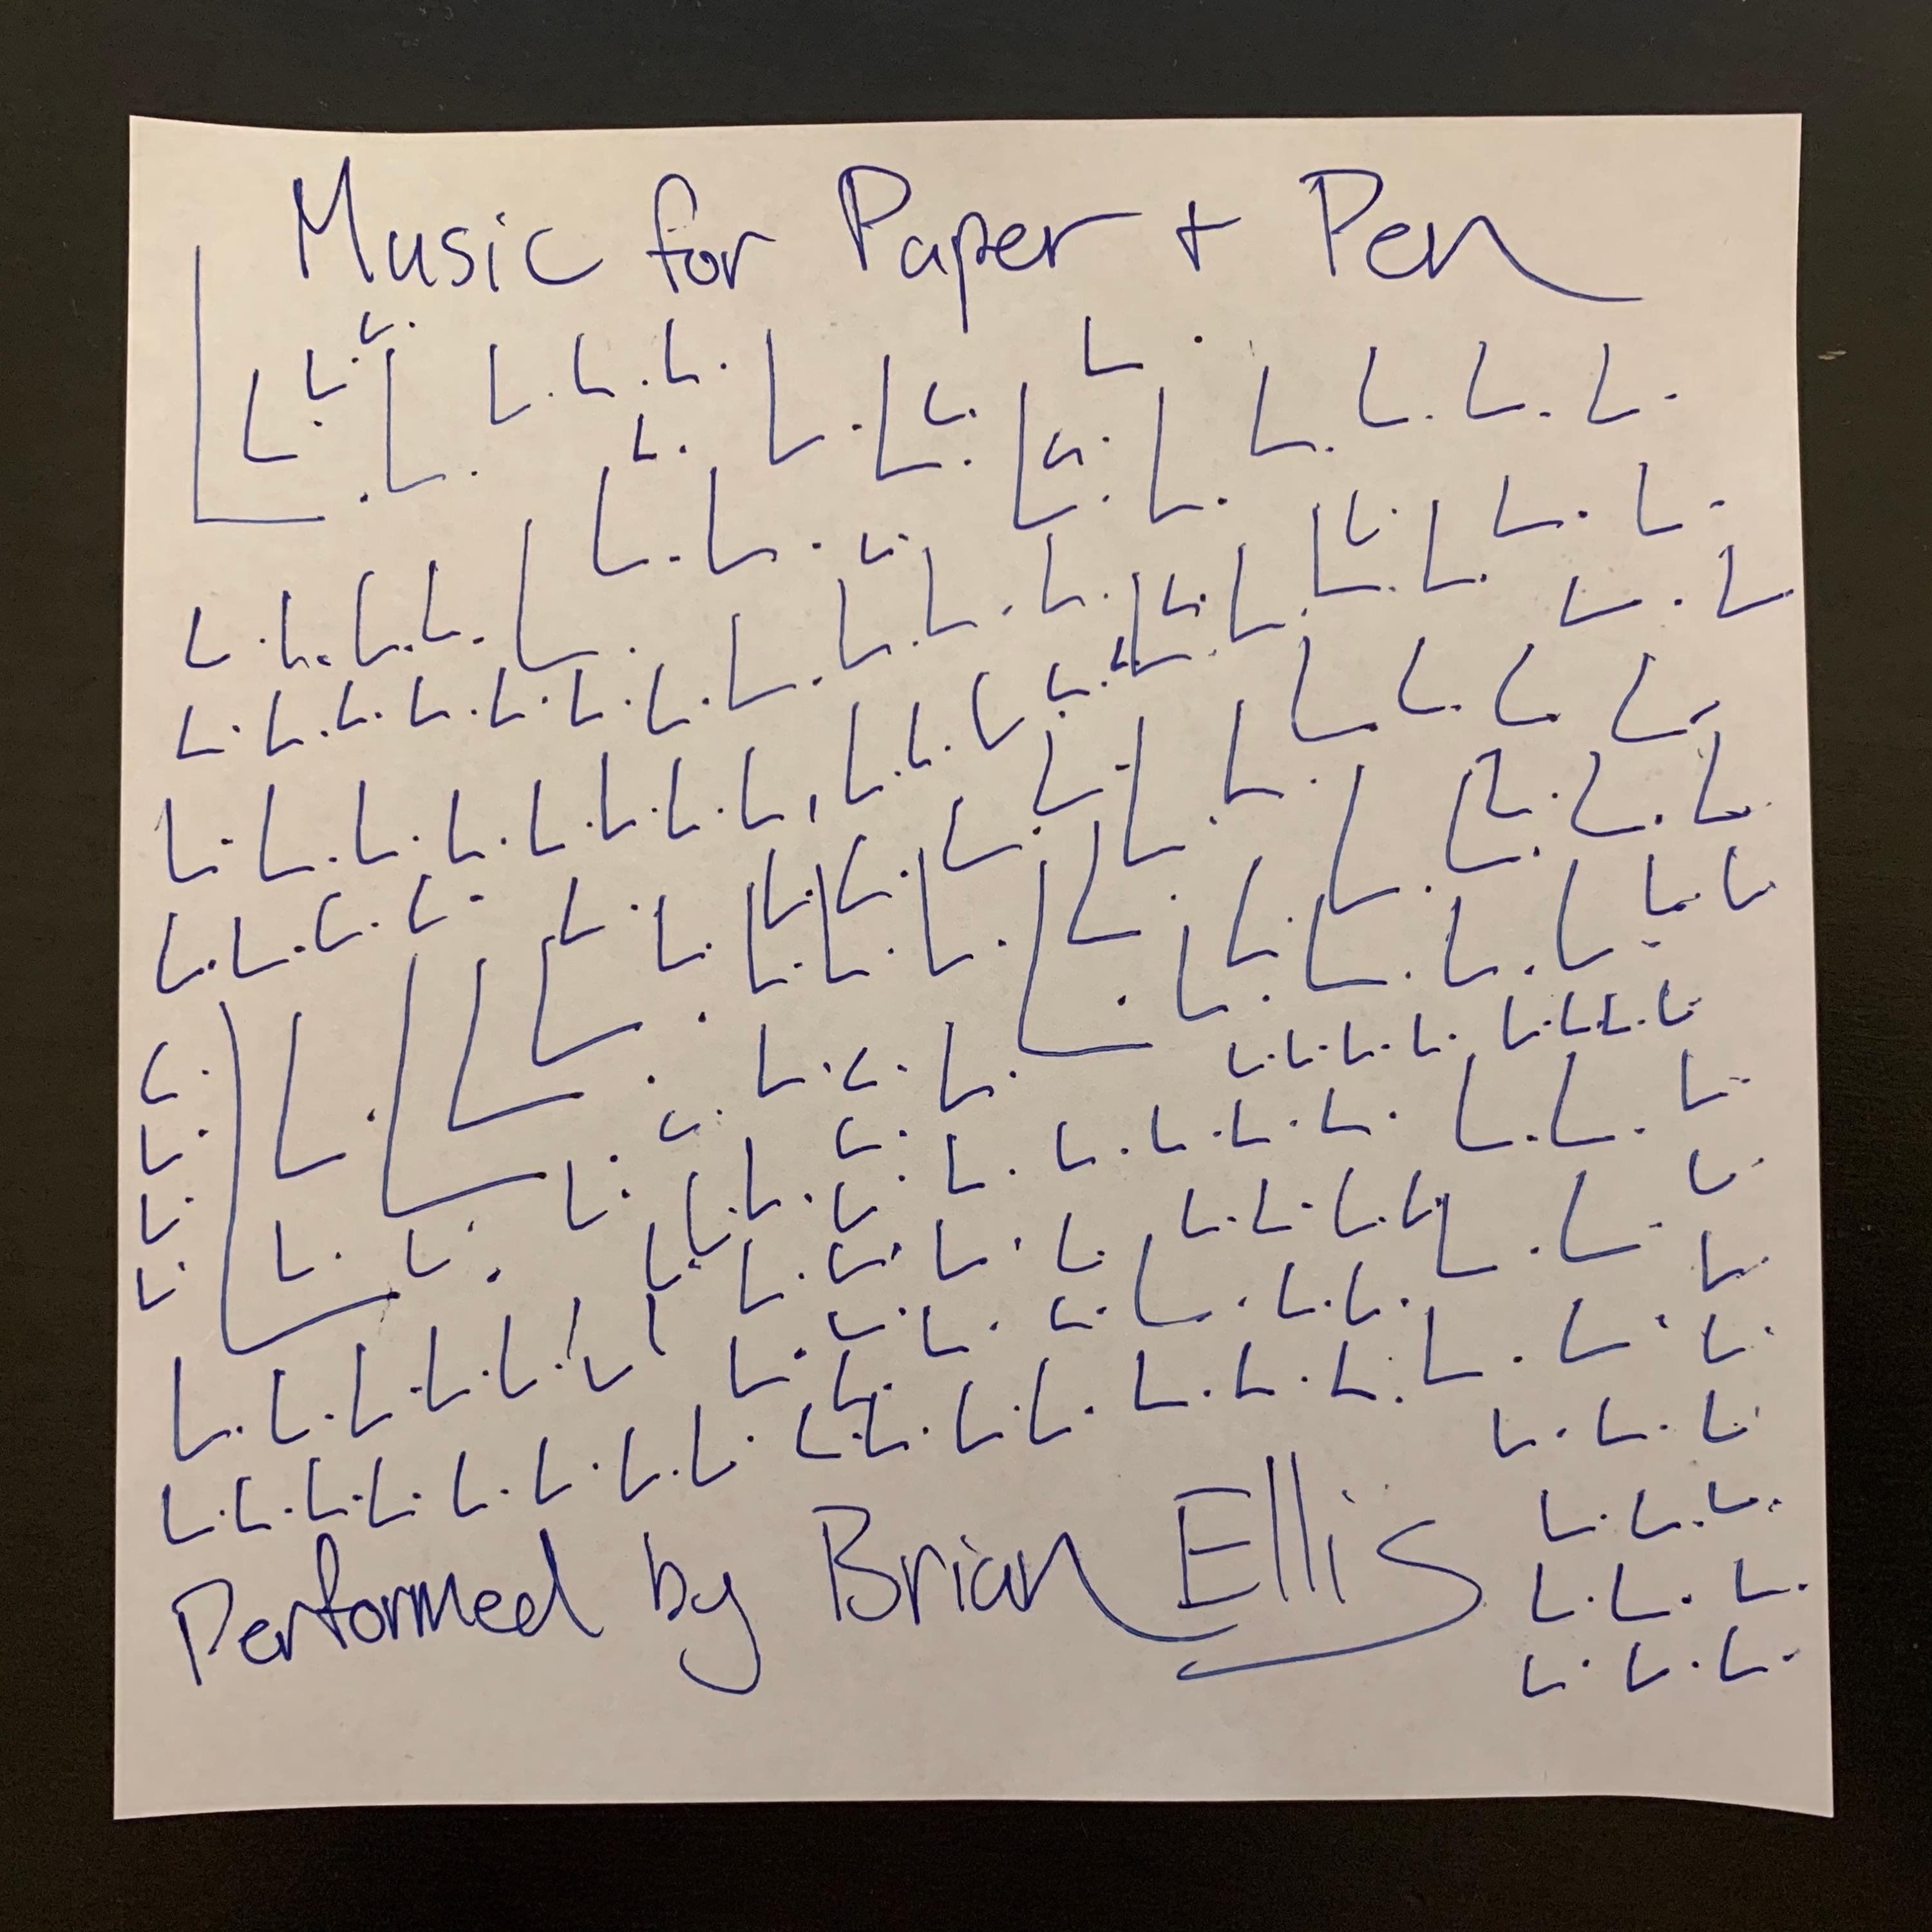 Music for Paper + Pen
Performed by Brian Ellis